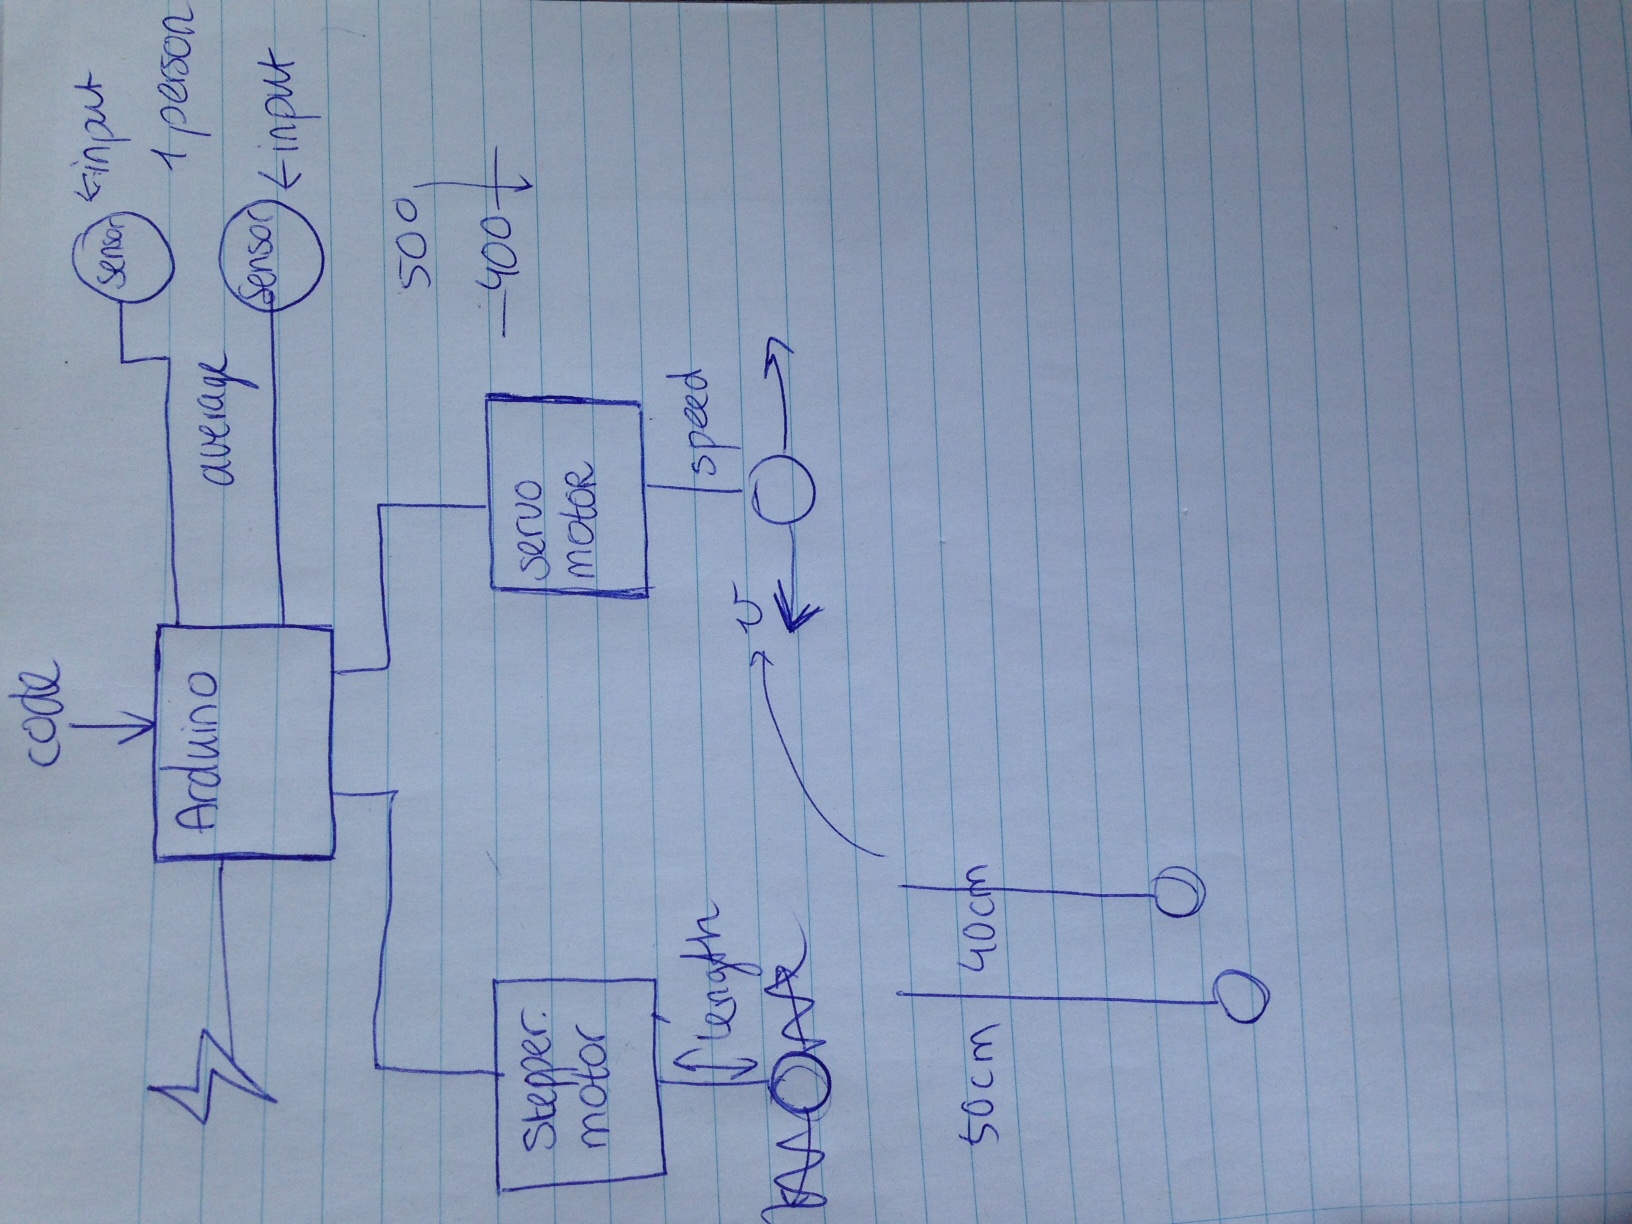 code
Arduino
sensor
←input
1 person
average
sensor
←input
500
-400-
stepper.
motor
servo
motoR
length
speed
v
50cm
40cm